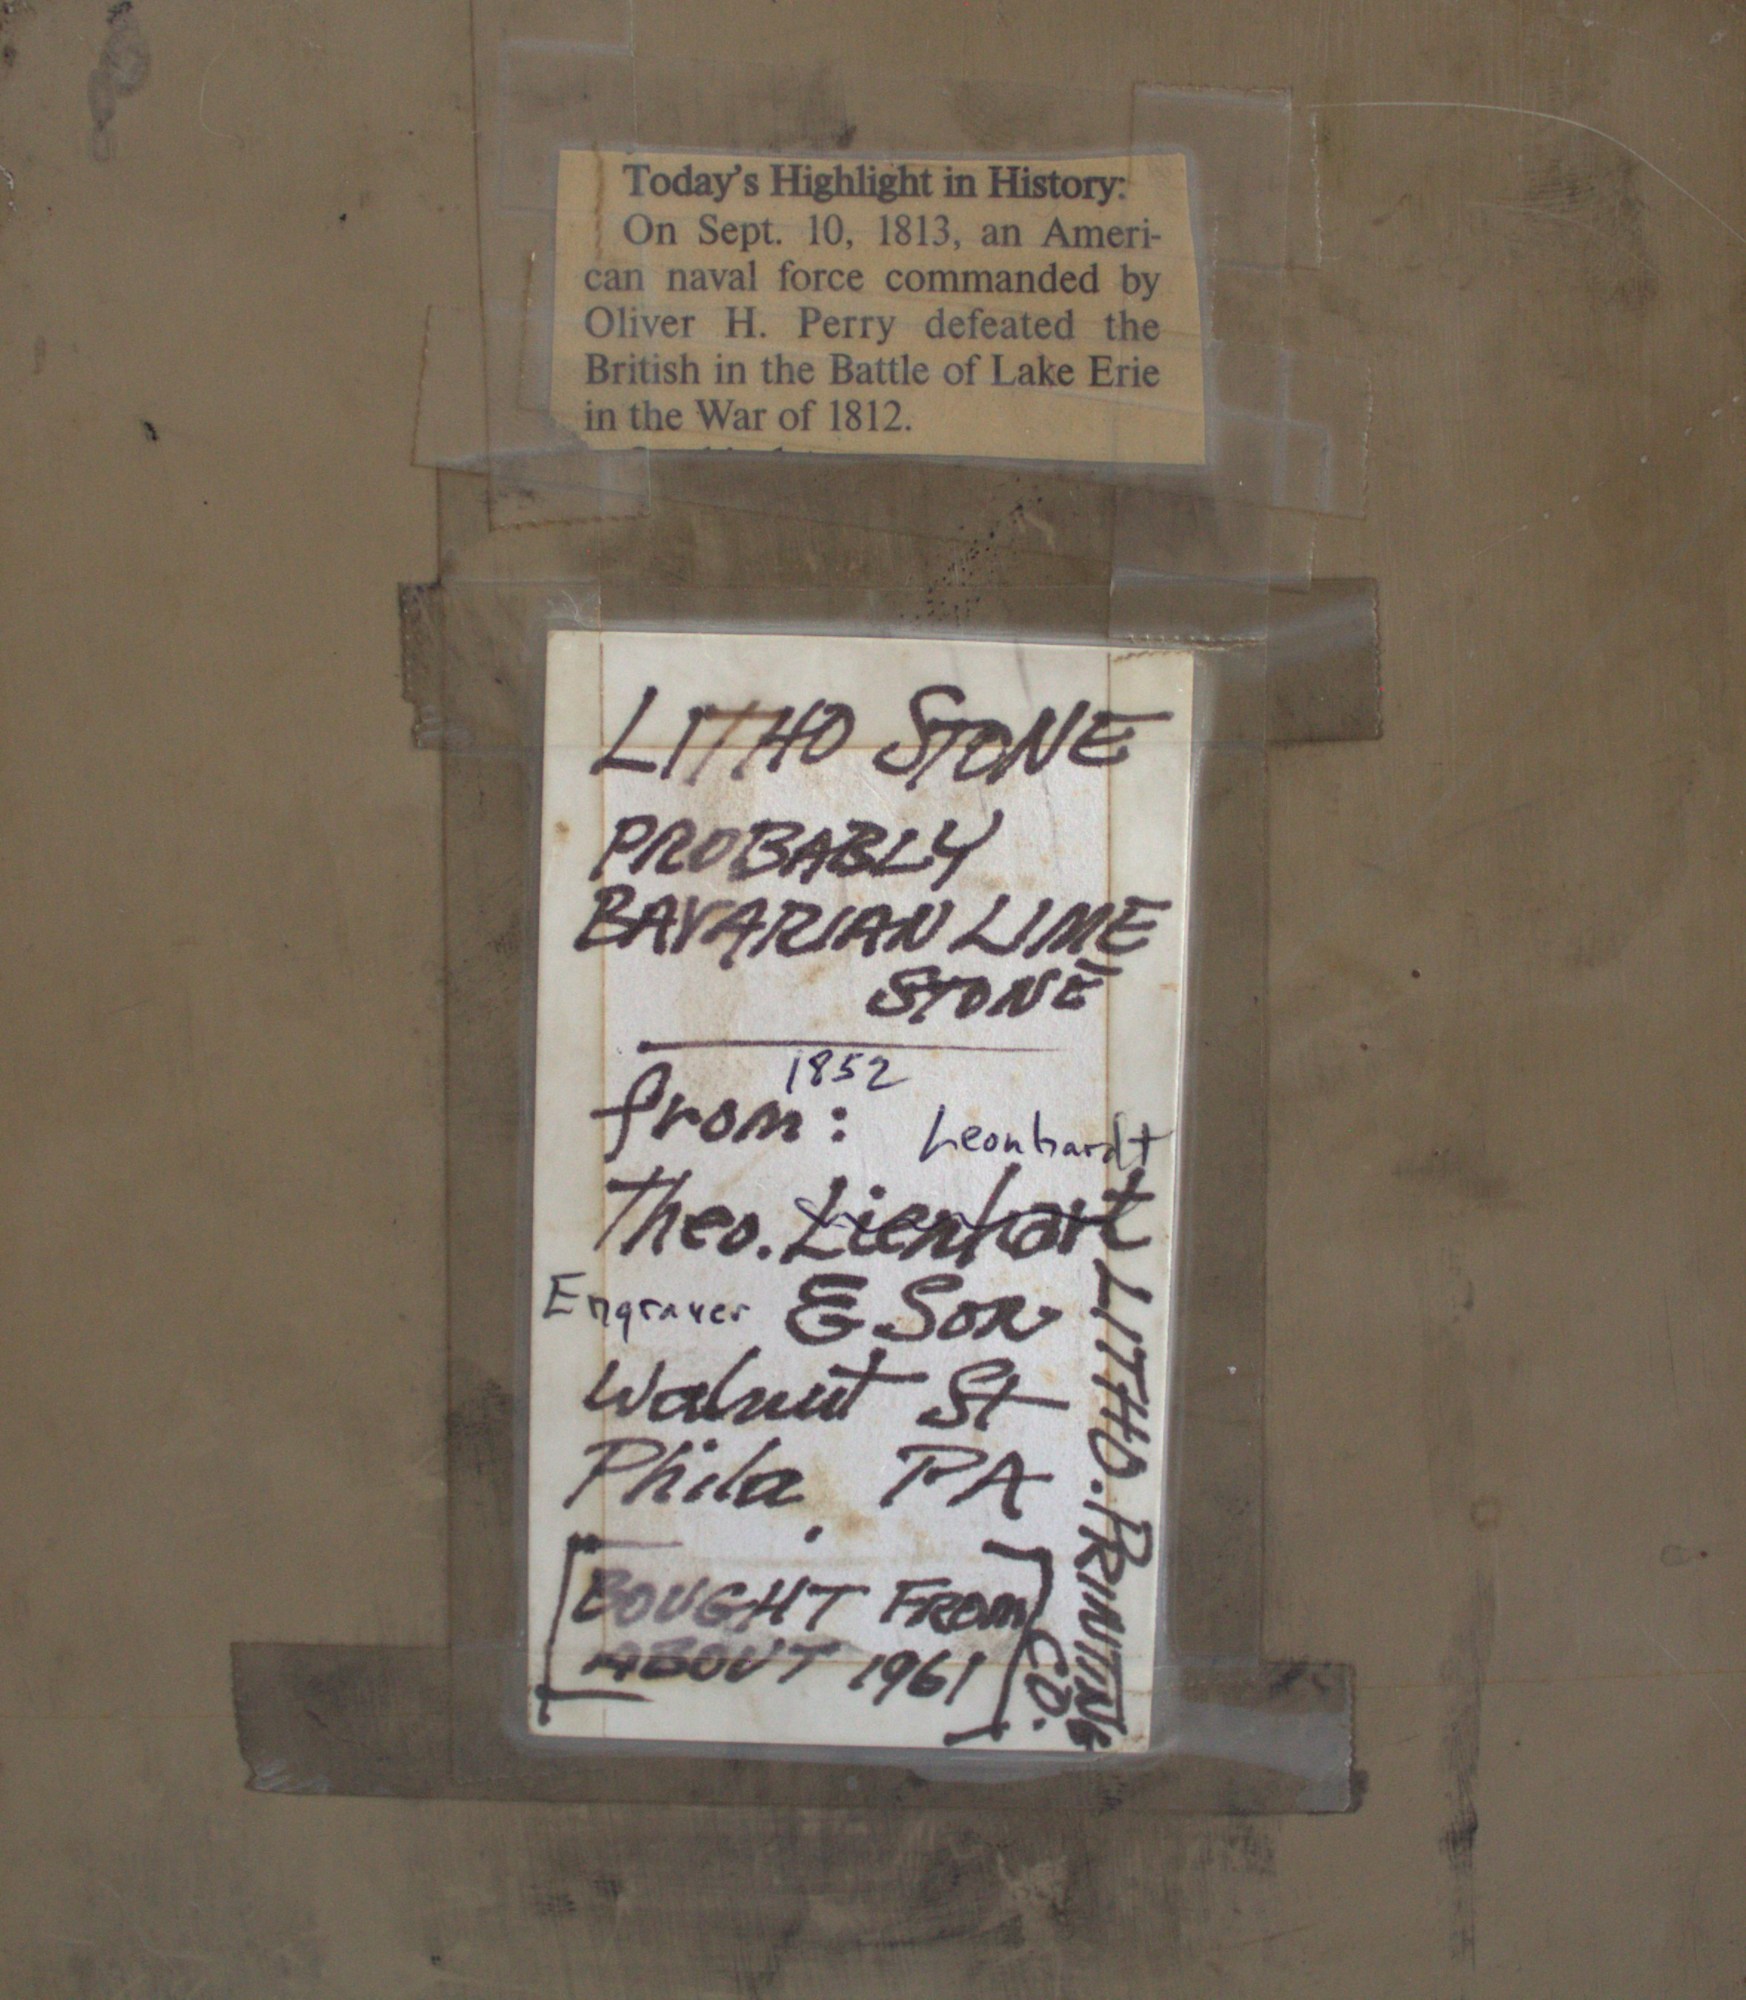 Today's Highlight in History:
On Sept. 10, 1813, an Ameri-
can naval force commanded by
Oliver H. Perry defeated the
British in the Battle of Lake Erie
in the War of 1812.
LITHO STONE
PROBABLY
BAVARIAN LIME
STONE
1852
from:
Leonhardt
Theo. Lienhart
Engraver & Son
Walnut St
Phila. PA
[BOUGHT FROM
ABOUT 1961]
LITHO. PRINTING
CO.